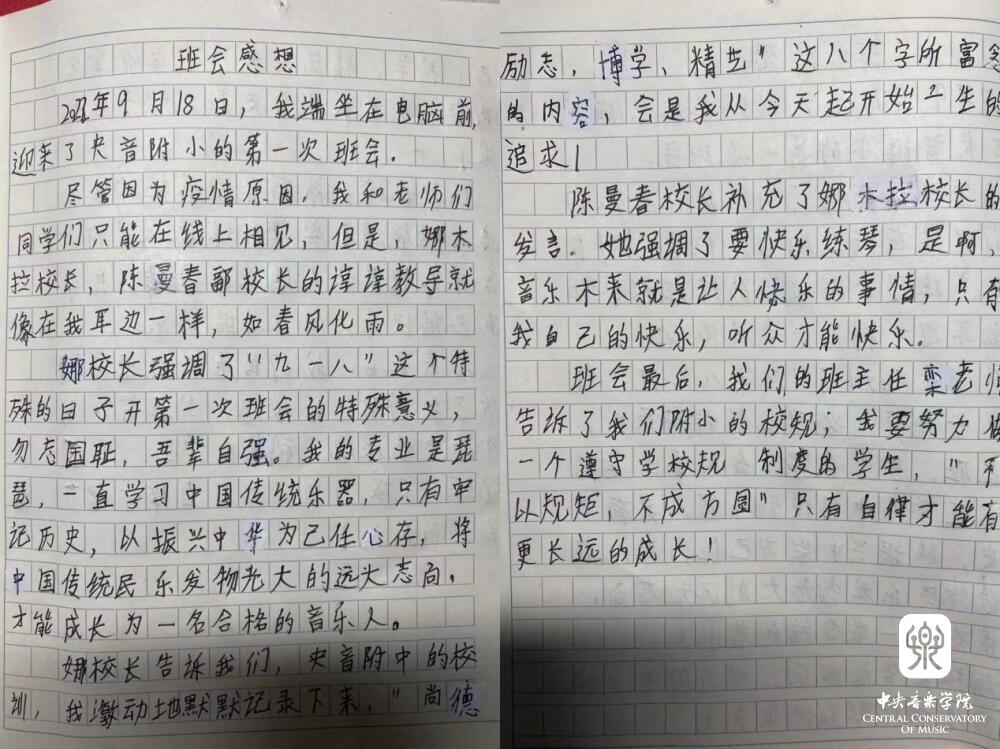 班会感想
2022年9月18日，我端坐在电脑前，
迎来了央音附小的第一次班会．
尽管因为疫情原因，我和老师们
同学们只能在线上相见，但是，娜木
拉校长，陈曼春副校长的谆谆教导就
像在我耳边一样，如春风化雨。
娜校长强调了“九一八”这个特
殊的日子开第一次班会的特殊意义，
勿忘国耻，吾辈自强。我的专业是琵
琶，一直学习中国传统乐器，只有牢
记历史，以振兴中华为己任心存，将
中国传统民乐发扬光大的远大志向，
才能成长为一名合格的音乐人。
娜校长告诉我们，央音附中的校
训，我激动地默默记录下来，“尚德
励志，博学、精艺”这八个字所富含
的内容，会是我从今天起开始一生的
追求！
陈曼春校长补充了娜木拉校长的
发言．她强调了要快乐练琴，是啊，
音乐本来就是让人快乐的事情，只有
我自己的快乐，听众才能快乐．
班会最后，我们的班主任栾老师
告诉了我们附小的校规；我要努力做
一个遵守学校规 制度的学生，“不
以规矩，不成方圆”只有自律才能有
更长远的成长！
中央音乐学院
CENTRAL CONSERVATORY
OF MUSIC